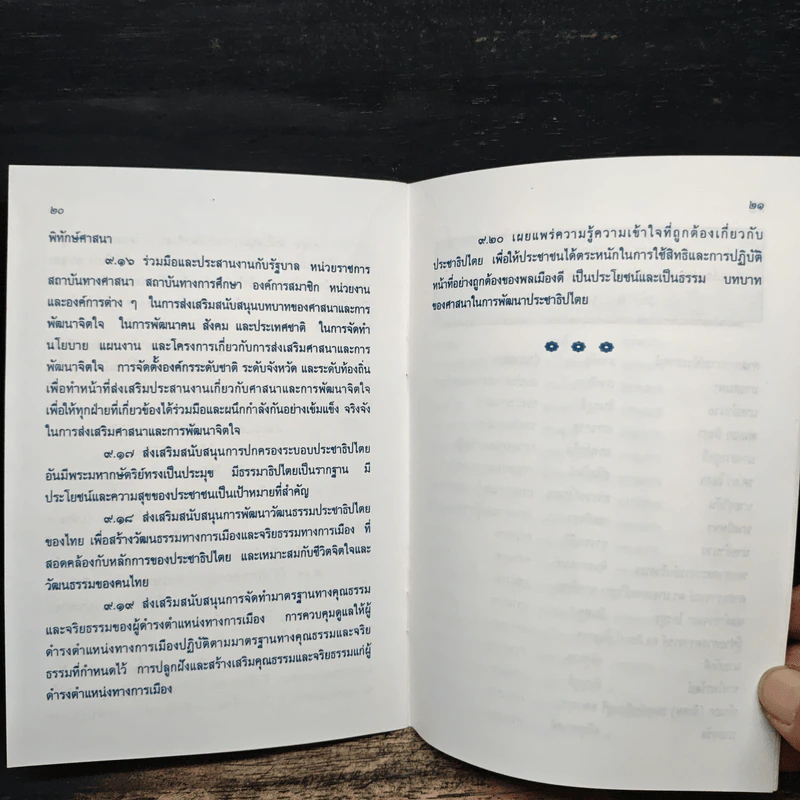 ๒๐
พิทักษ์ศาสนา
๙.๑๖ ร่วมมือและประสานงานกับรัฐบาล หน่วยราชการ
สถาบันทางศาสนา สถาบันทางการศึกษา องค์การสมาชิก หน่วยงาน
และองค์การต่าง ๆ ในการส่งเสริมสนับสนุนบทบาทของศาสนาและการ
พัฒนาจิตใจ ในการพัฒนาคน สังคม และประเทศชาติ ในการจัดทำ
นโยบาย แผนงาน และโครงการเกี่ยวกับการส่งเสริมศาสนาและการ
พัฒนาจิตใจ การจัดตั้งองค์กรระดับชาติ ระดับจังหวัด และระดับท้องถิ่น
เพื่อทำหน้าที่ส่งเสริมประสานงานเกี่ยวกับศาสนาและการพัฒนาจิตใจ
เพื่อให้ทุกฝ่ายที่เกี่ยวข้องได้ร่วมมือและผนึกกำลังกันอย่างเข้มแข็ง จริงจัง
ในการส่งเสริมศาสนาและการพัฒนาจิตใจ
๙.๑๗ ส่งเสริมสนับสนุนการปกครองระบอบประชาธิปไตย
อันมีพระมหากษัตริย์ทรงเป็นประมุข มีธรรมาธิปไตยเป็นรากฐาน มี
ประโยชน์และความสุขของประชาชนเป็นเป้าหมายที่สำคัญ
๙.๑๘ ส่งเสริมสนับสนุนการพัฒนาวัฒนธรรมประชาธิปไตย
ของไทย เพื่อสร้างวัฒนธรรมทางการเมืองและจริยธรรมทางการเมือง ที่
สอดคล้องกับหลักการของประชาธิปไตย และเหมาะสมกับชีวิตจิตใจและ
วัฒนธรรมของคนไทย
๙.๑๙ ส่งเสริมสนับสนุนการจัดทำมาตรฐานทางคุณธรรม
และจริยธรรมของผู้ดำรงตำแหน่งทางการเมือง การควบคุมดูแลให้ผู้
ดำรงตำแหน่งทางการเมืองปฏิบัติตามมาตรฐานทางคุณธรรมและจริย
ธรรมที่กำหนดไว้ การปลูกฝังและสร้างเสริมคุณธรรมและจริยธรรมแก่ผู้
ดำรงตำแหน่งทางการเมือง
๒๑
๙.๒๐ เผยแพร่ความรู้ความเข้าใจที่ถูกต้องเกี่ยวกับ
ประชาธิปไตย เพื่อให้ประชาชนได้ตระหนักในการใช้สิทธิและการปฏิบัติ
หน้าที่อย่างถูกต้องของพลเมืองดี เป็นประโยชน์และเป็นธรรม บทบาท
ของศาสนาในการพัฒนาประชาธิปไตย